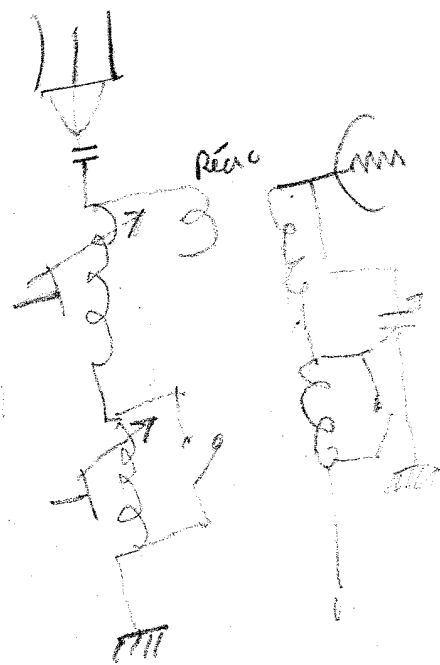 Réac